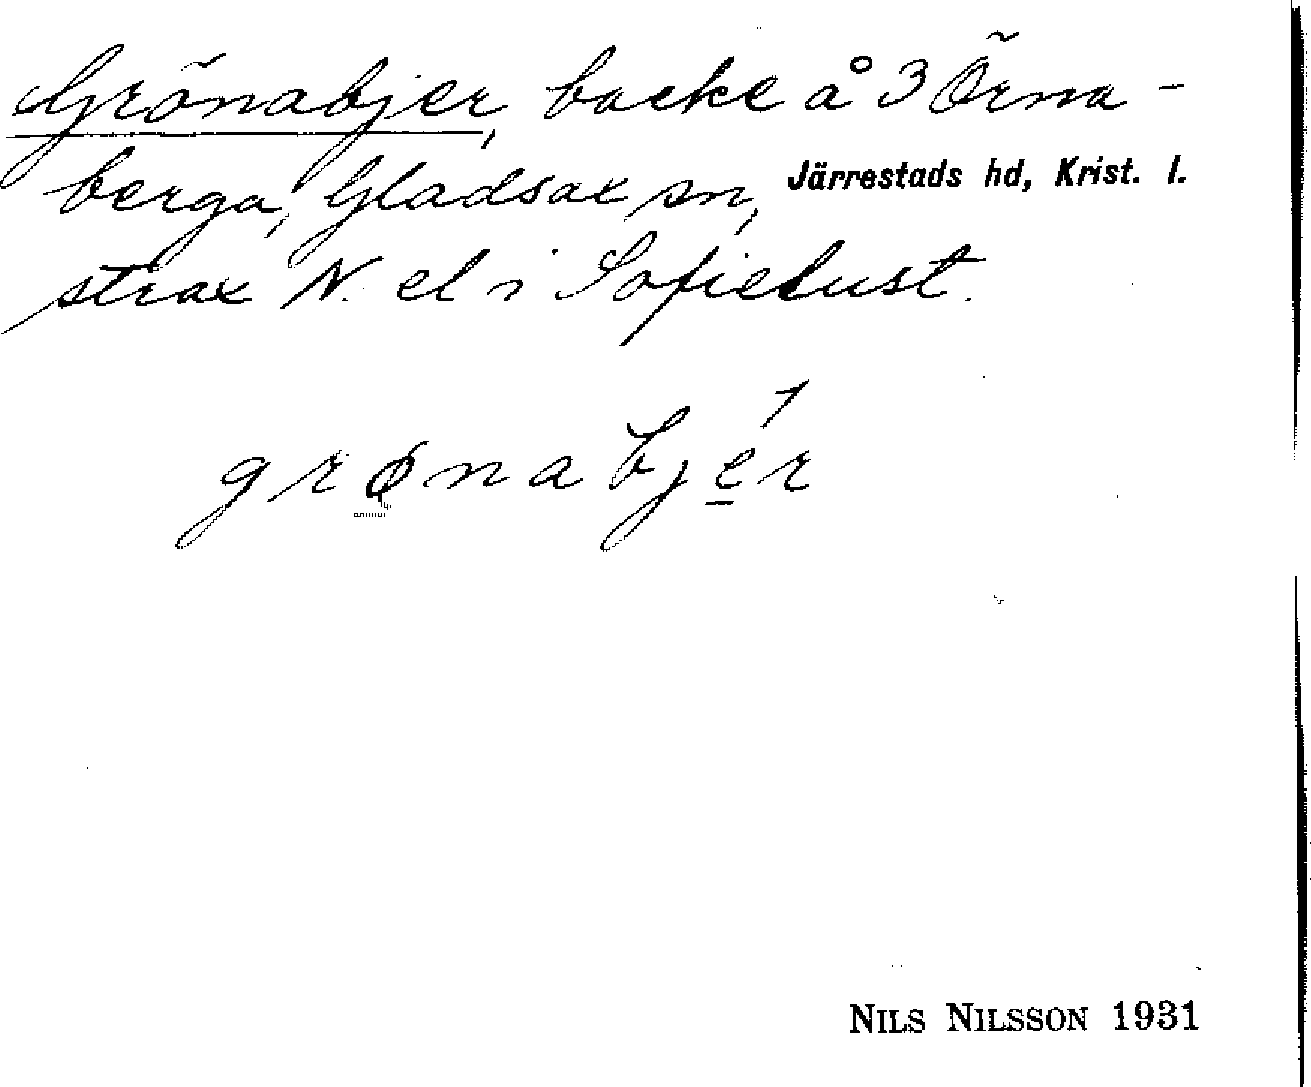 Grönabjer, backe å 3 Örna-
berga, Gladsax sn, Järrestads hd, Krist. l.
strax N. el i Sofielust.
grønabjér
NILS NILSSON 1931